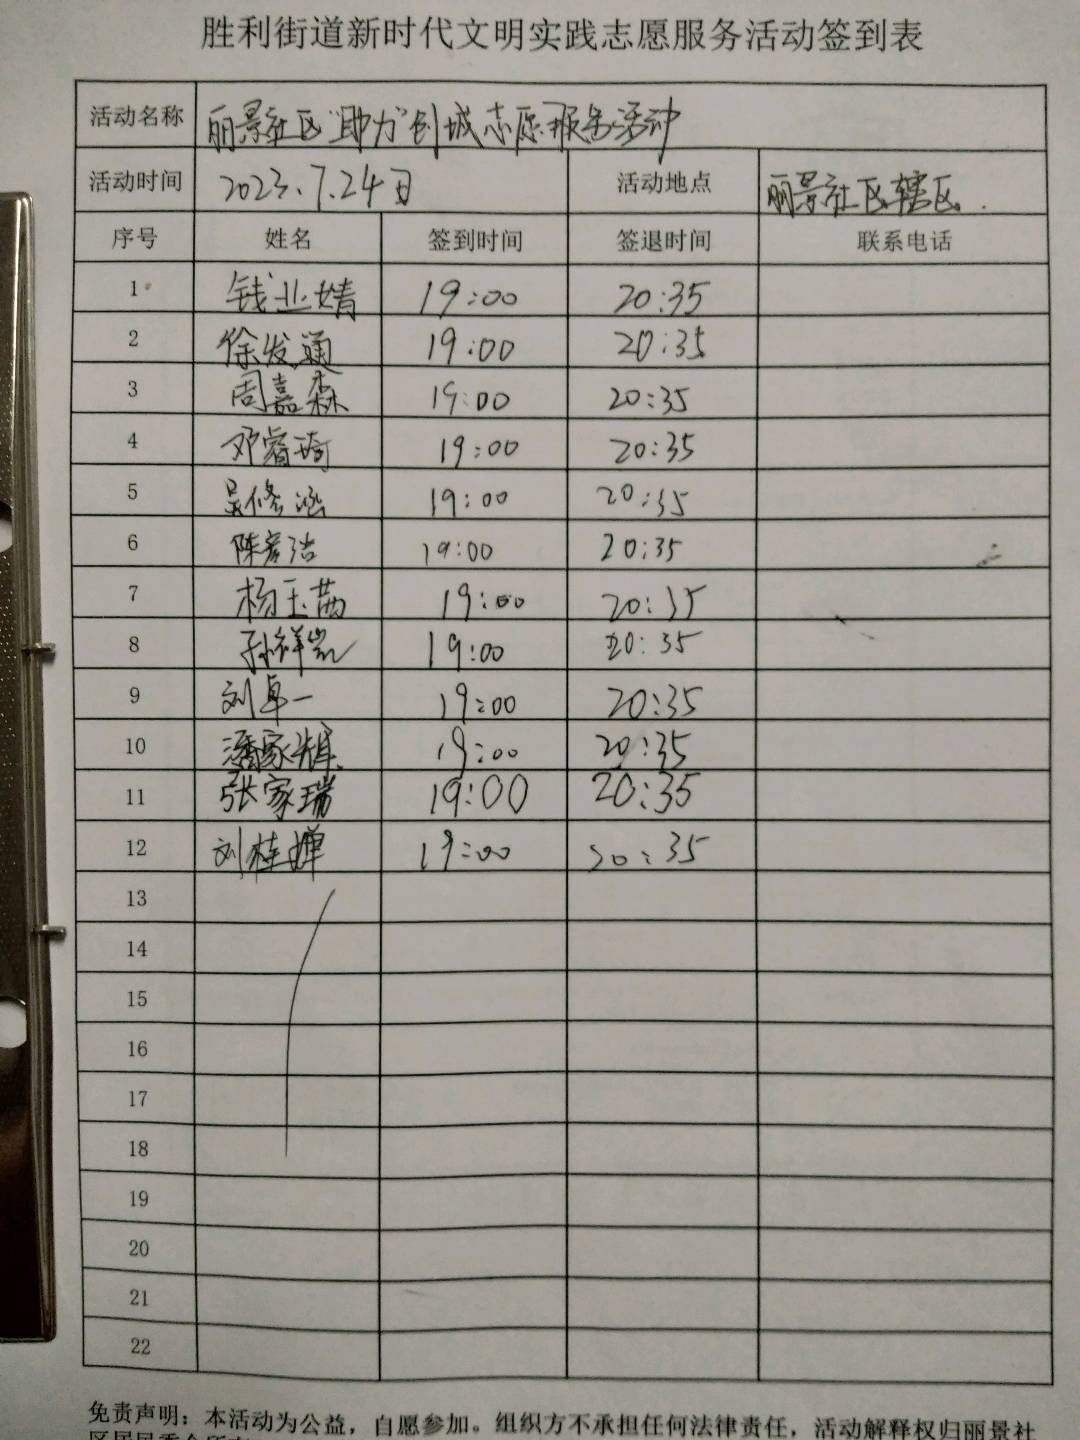 胜利街道新时代文明实践志愿服务活动签到表
活动名称 丽景社区"助力"创城志愿服务活动
活动时间 2023.7.24日 活动地点 丽景社区辖区.
序号 姓名 签到时间 签退时间 联系电话
1 钱业婧 19:00 20:35
2 徐发通 19:00 20:35
3 周嘉森 19:00 20:35
4 邓睿琦 19:00 20:35
5 吴修涵 19:00 20:35
6 陈彦洁 19:00 20:35
7 杨玉茜 19:00 20:35
8 孙祥凯 19:00 20:35
9 刘卓一 19:00 20:35
10 潘家辉 19:00 20:35
11 张家瑞 19:00 20:35
12 刘桂婵 19:00 20:35
13
14
15
16
17
18
19
20
21
22
免责声明：本活动为公益，自愿参加。组织方不承担任何法律责任，活动解释权归丽景社